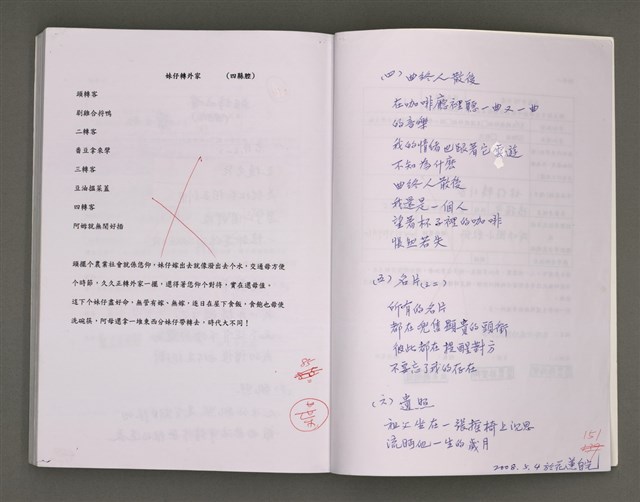 妹仔轉外家 (四縣腔)
頭轉客
剁雞合持鴨
二轉客
番豆拿來擘
三轉客
豆油搵菜蓋
四轉客
阿姆就無閒好插
頭擺个農業社會就係恁仰，妹仔嫁出去就像潑出去个水，交通毋方便
个時節，久久正轉外家一擺，還得著恁仰个對待，實在還毋值。
這下个妹仔盡好命，無管有嫁、無嫁，逐日在屋下食飯，食飽也毋使
洗碗筷，阿母還拿一堆東西分妹仔帶轉去，時代大不同！
(四) 曲終人散後
在咖啡廳裡聽一曲又一曲
的音樂
我的情緒也跟著它雲遊
不知為什麼
曲終人散後
我還是一個人
望著杯子裡的咖啡
悵然若失
(五) 名片(之二)
所有的名片
都在兜售顯貴的頭銜
彼此都在提醒對方
不要忘了我的存在
(六) 遺照
祖父坐在一張搖椅上沉思
流時他一生的歲月
151
2008.5.4 於花蓮自宅